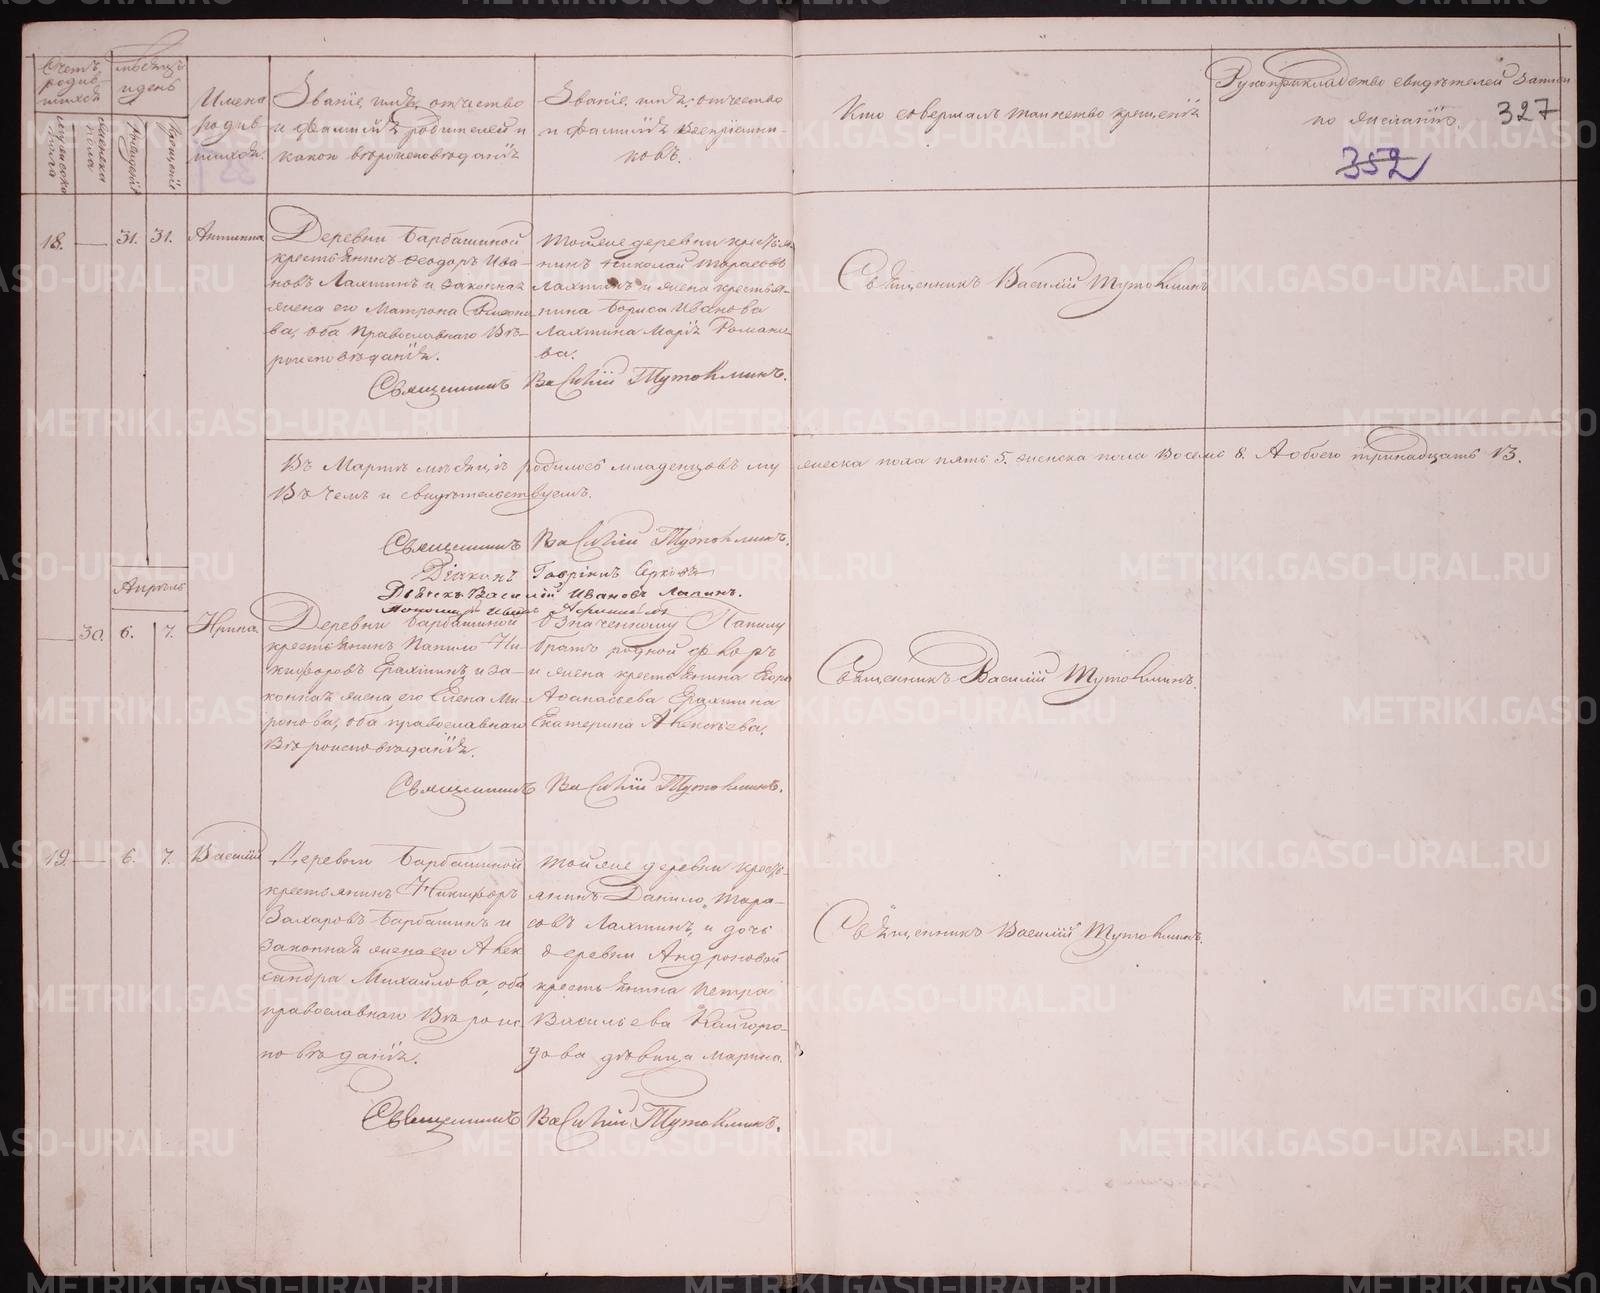 Счетъ родив-шихся
мужеска пола
женска пола
Мѣсяцъ и день
рожденія
крещенія
Имена родив-шихся.
Званіе, имя, отчество
и фамилія родителей и
какой вѣроисповѣданія
Званіе, имя, отчество
и фамилія воспріемни-
ковъ.
Кто совершалъ таинство крещенія
Рукоприкладство свидѣтелей записи
по желанію.
327
352
18. 31. 31.
Деревни Барбашиной
крестьянинъ Феодоръ Ива-
новъ Лахтинъ и законная
жена его Матрона
ва, оба Православнаго Вѣ-
роисповѣданія.
Тойже деревни кресть-
нинъ Николай Тарасовъ
Лахтинъ и жена крестья-
нина Бориса Иванова
Лахтина Марія Романо-
ва.
Священникъ Василій Тутолминъ
Священникъ Василій Тутолминъ.
Въ Мартѣ мѣсяцѣ родилось младенцовъ му жеска пола пять 5. женска пола восемь 8. А обоего тринадцать 13.
Въ чемъ и свидѣтельствуемъ.
Священникъ Василій Тутолминъ.
Діаконъ Гавріилъ
Дьячекъ Василій Ивановъ Лапинъ.
Апрель
30. 6. 7. Ирина.
Деревни Барбашиной
крестьянинъ Панило Ни-
кифоровъ Ерахтинъ и за-
конная жена его Елена Ми-
ронова, оба православнаго
Вѣроисповѣданія.
Означенному Панилу
братъ родной
и жена крестьянина Егора
Афанасьева Ерахтина
Екатерина Алексѣева.
Священникъ Василій Тутолминъ.
Священникъ Василій Тутолминъ.
19. 6. 7. Василій
Деревни Барбашиной
крестьянинъ Никифоръ
Захаровъ Барбашинъ и
законная жена его Алек
сандра Михайлова, оба
православнаго Вѣроис
повѣданія.
Тойже деревни кресть-
янинъ Данило Тара-
совъ Лахтинъ, и дочь
деревни Андроновой
крестьянина Петра
Васильева Кайгоро-
дова дѣвица Марина.
Священникъ Василій Тутолминъ.
Священникъ Василій Тутолминъ.
METRIKI.GASO-URAL.RU